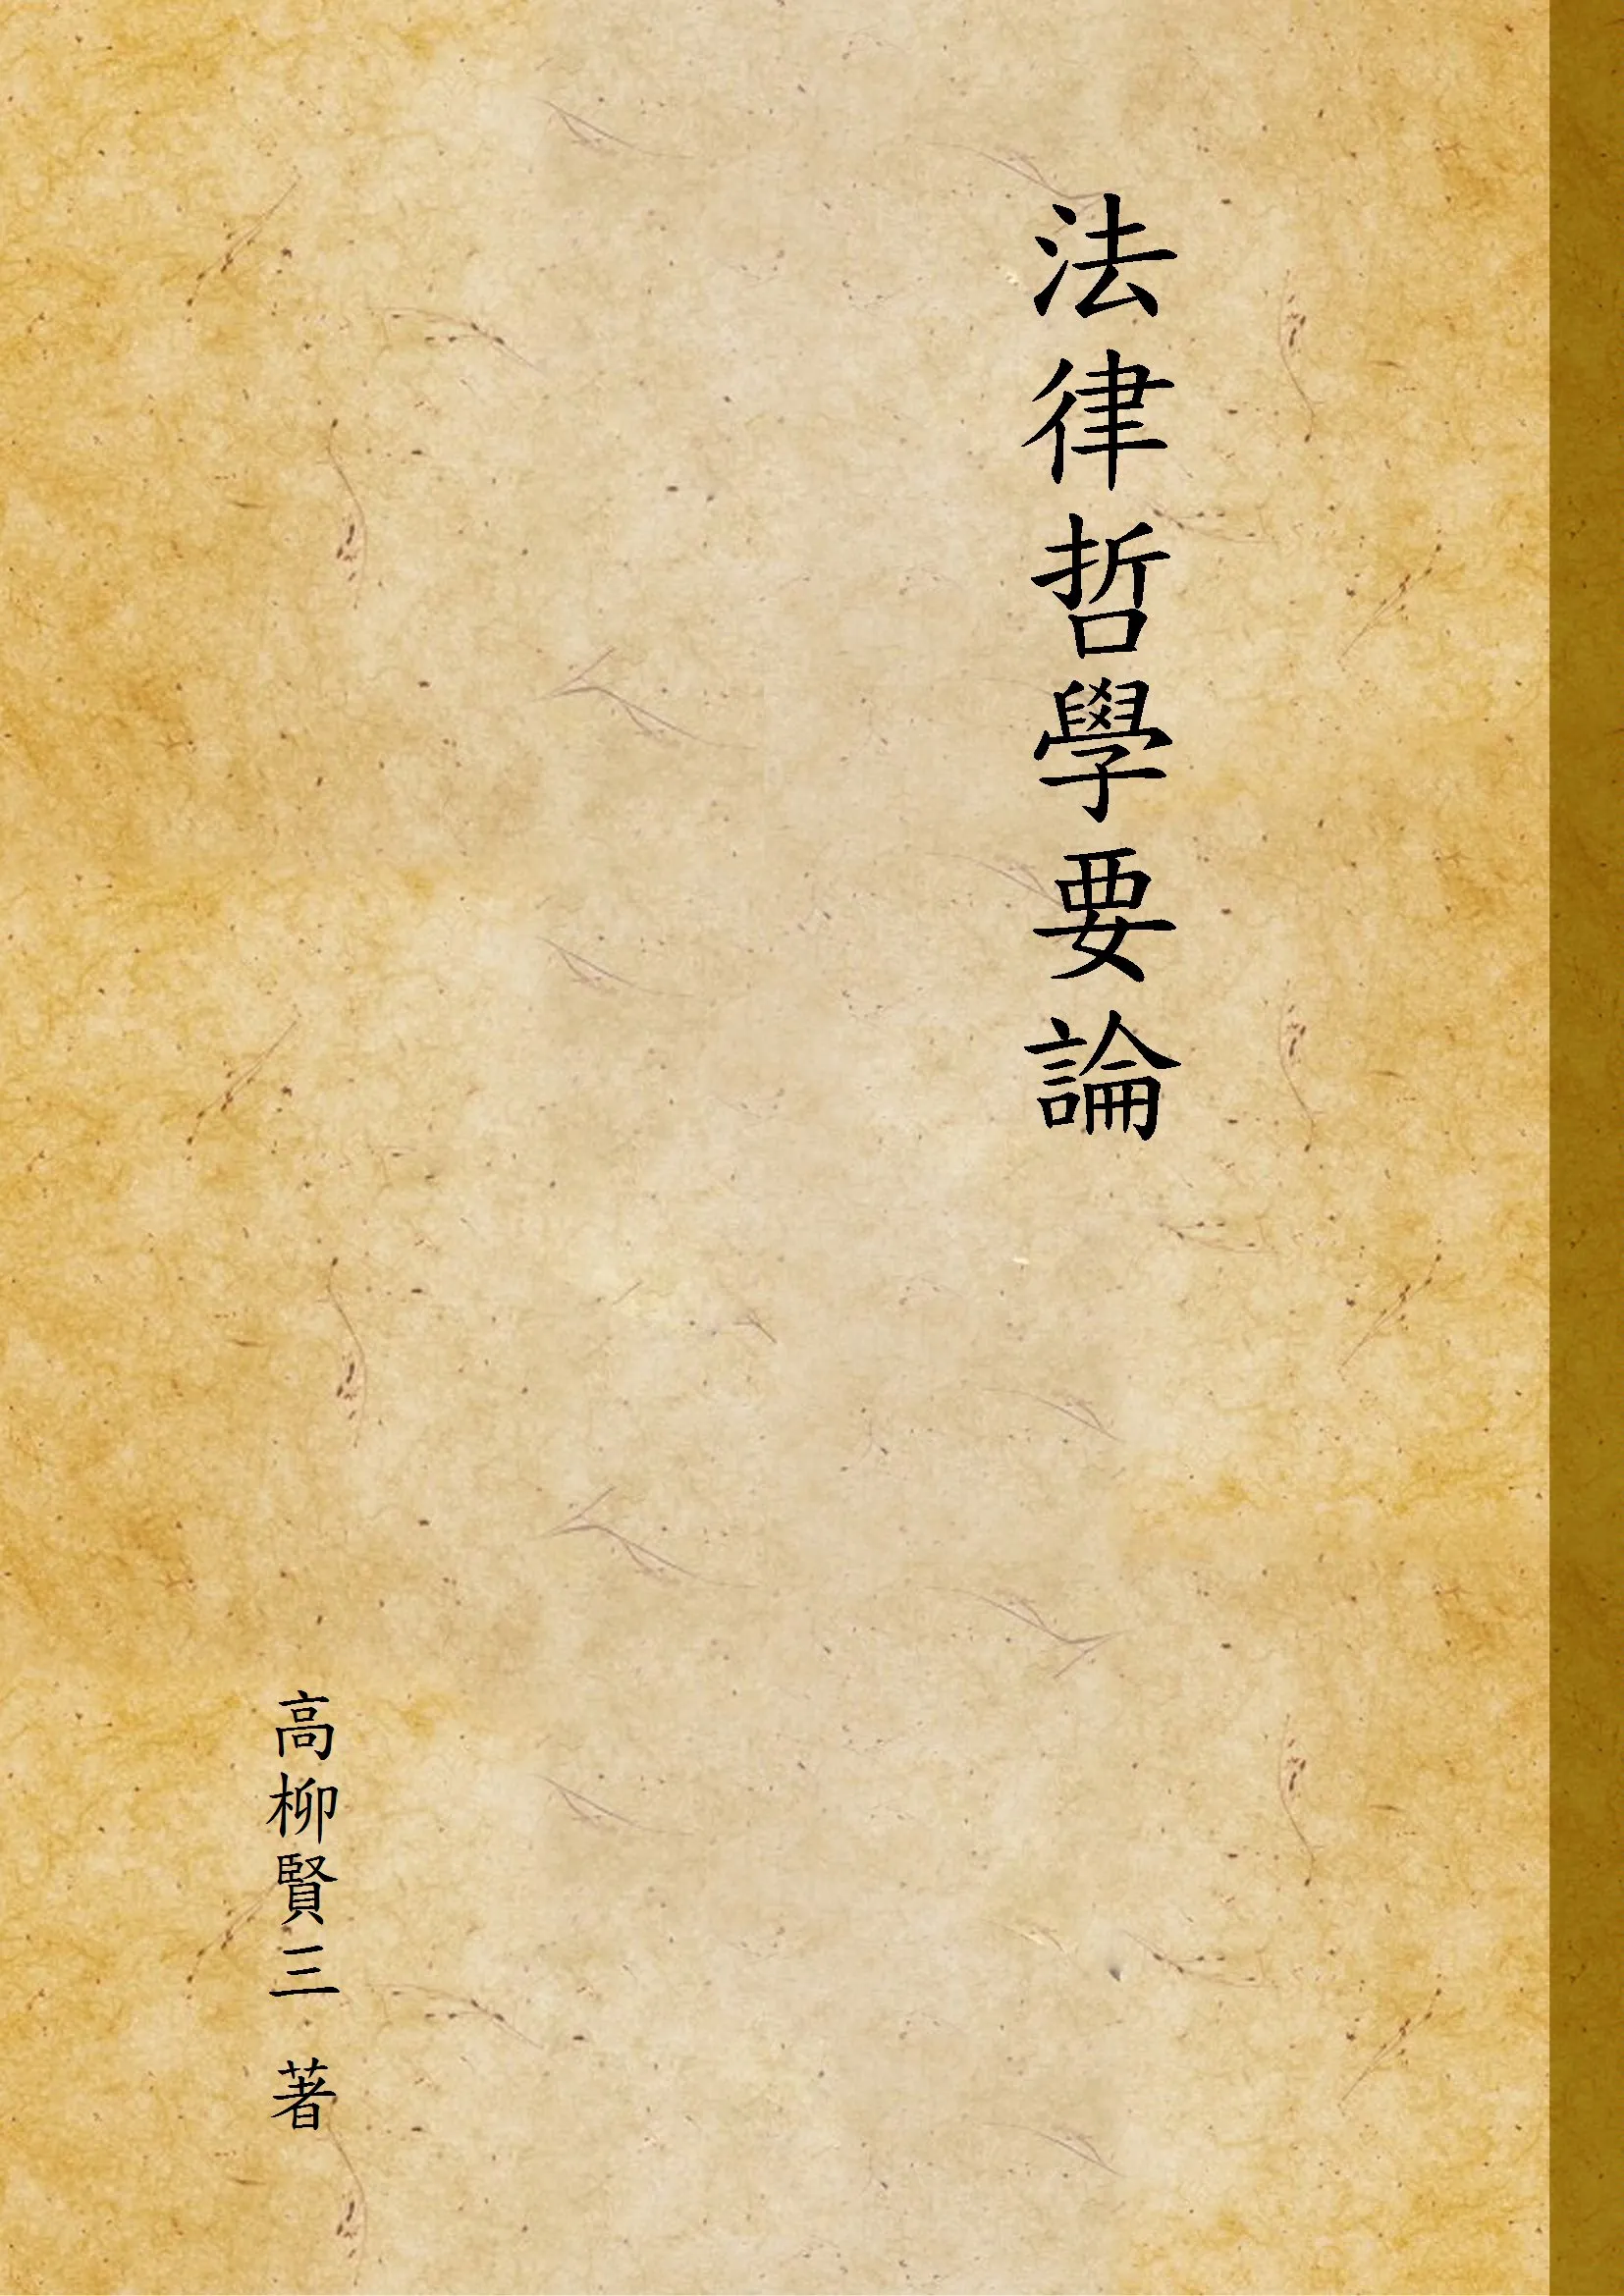 法律哲學要論
高柳賢三 著